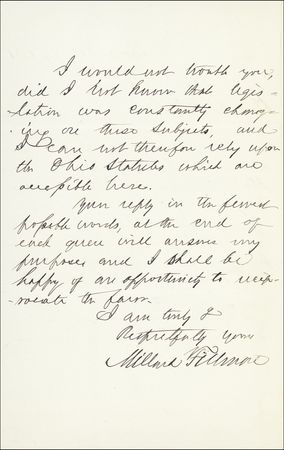 I would not trouble you,
did I not know that legis-
-lation was constantly chang-
-ing on these subjects, and
I can not therefore rely upon
the Ohio Statutes which are
accessible here.
Your reply in the fewest
possible words, at the end of
each query will answer my
purpose, and I shall be
happy of an opportunity to recip-
-rocate the favor.
I am truly &
Respectfully yours
Millard Fillmore